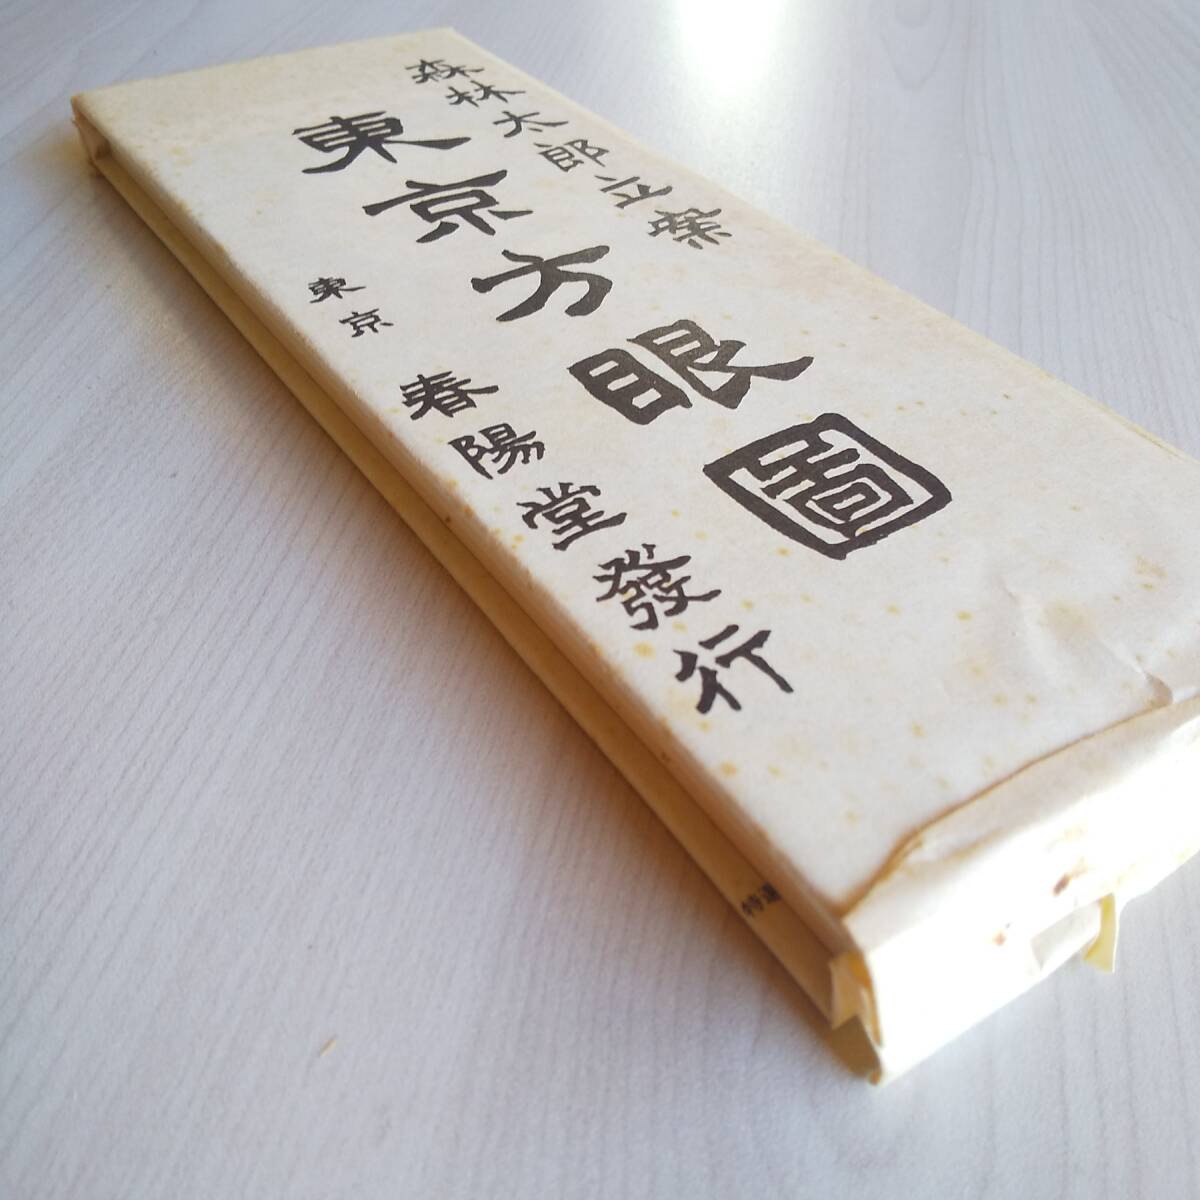 森林太郎立案
東京方眼圖
東京 春陽堂發行
特選